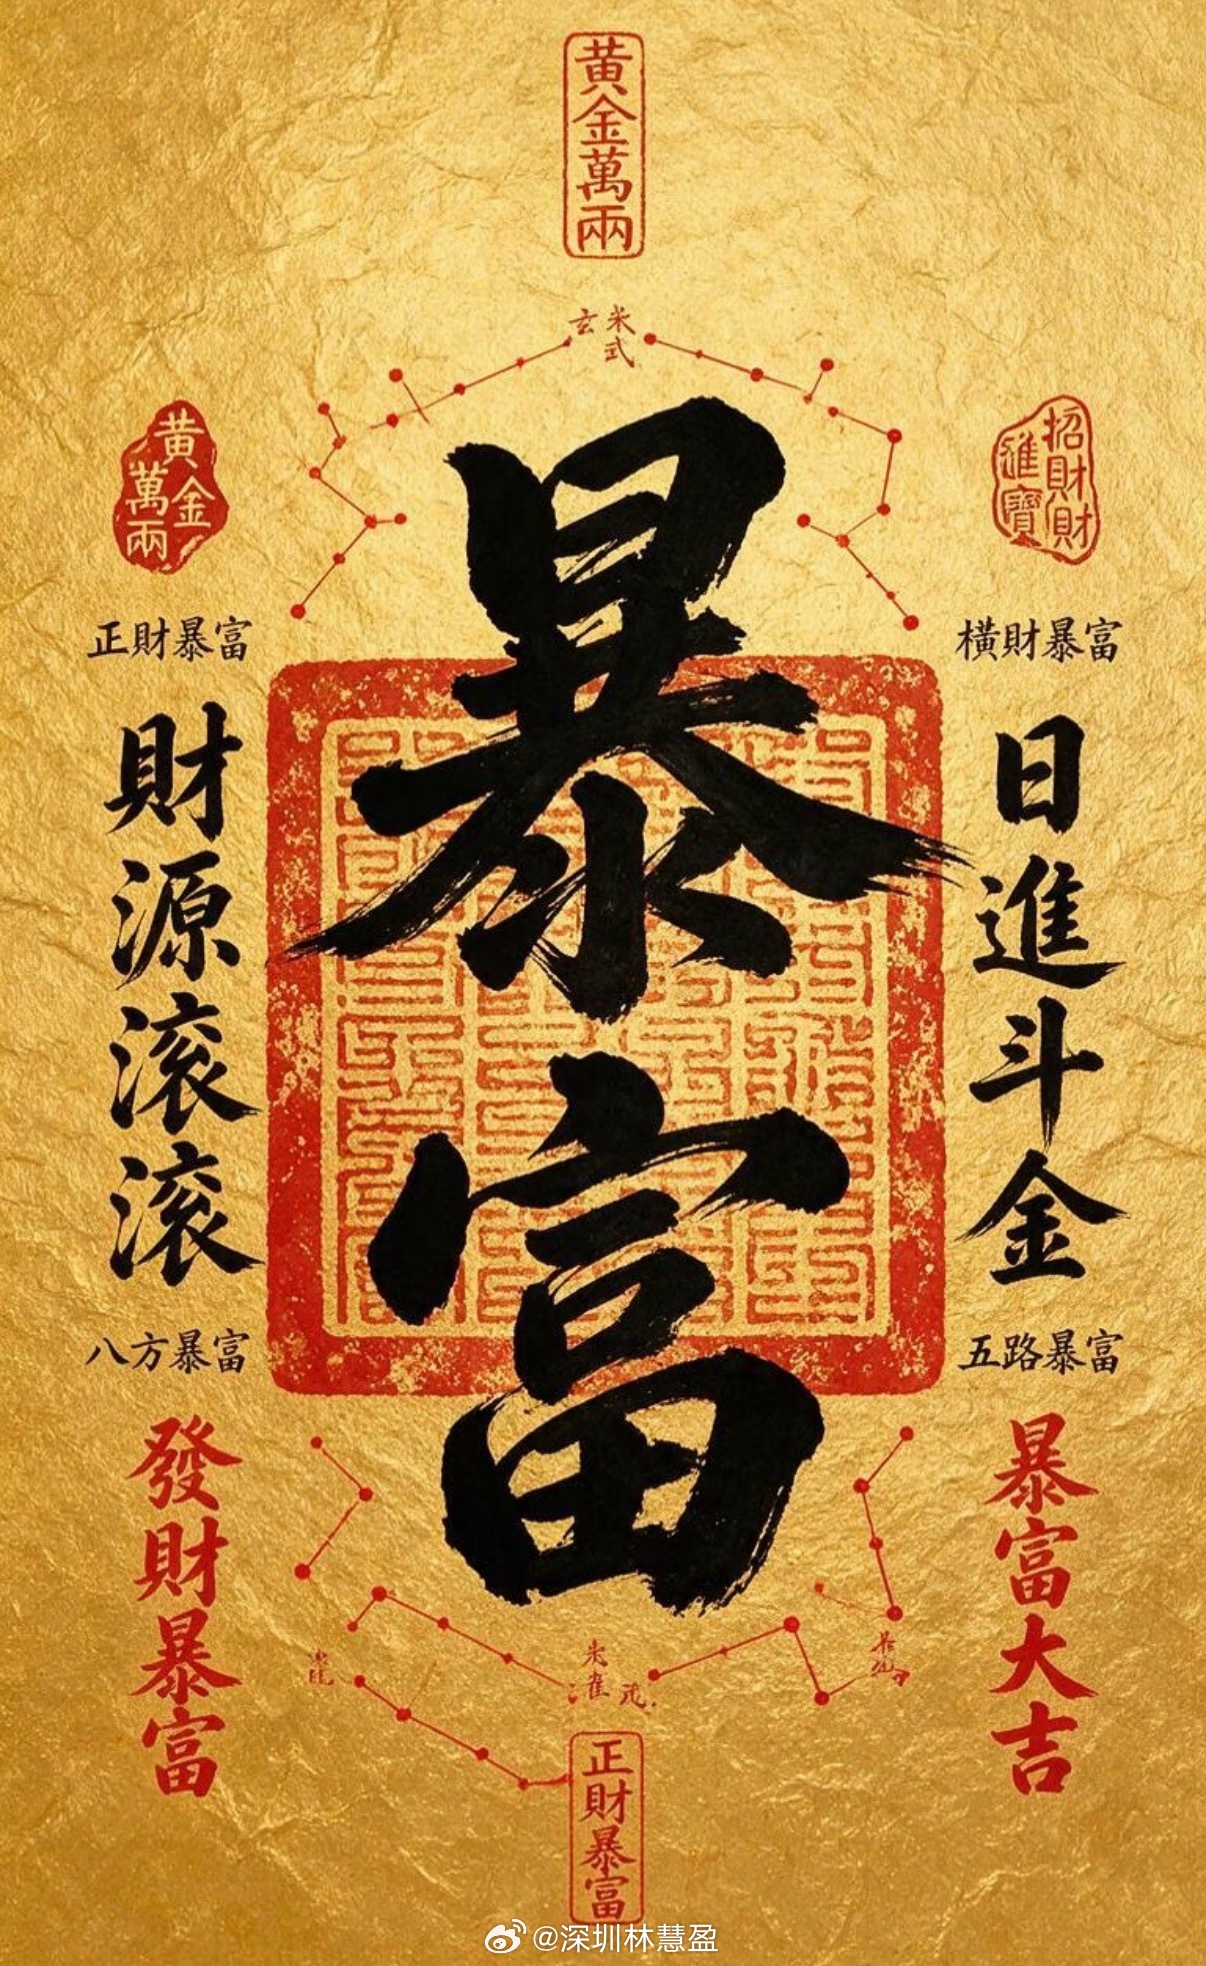 黄金萬兩
玄米式
黄金萬兩
招財財進寶
正財暴富
橫財暴富
暴富
財源滚滚
日進斗金
八方暴富
五路暴富
發財暴富
暴富大吉
朱雀
正財暴富
@深圳林慧盈